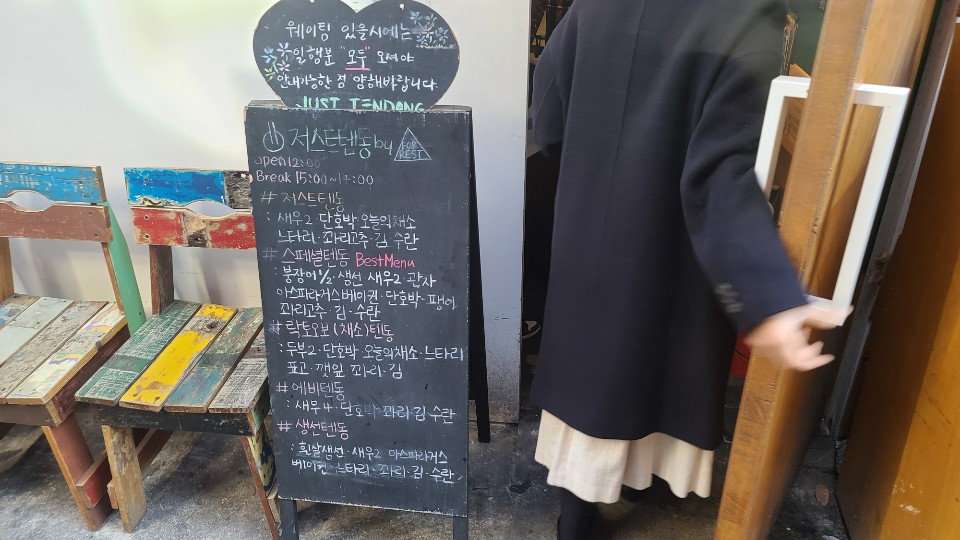 웨이팅 있을시에는
일행분 "모두" 오셔야
안내가능한 점 양해바랍니다
JUST TENDONG
저스트텐동 by FOR REST
open 12:00
Break 15:00~17:00
# 저스트텐동
: 새우2 단호박 오늘의채소
느타리·꽈리고추·김·수란
# 스페셜텐동 Best Menu
: 붕장어½·생선·새우2·관자
아스파라거스베이컨·단호박·팽이
꽈리고추·김·수란
# 락토오보(채소)텐동
: 두부2·단호박·오늘의채소·느타리
표고·깻잎·꽈리·김
# 에비텐동
: 새우4·단호박·꽈리·김·수란
# 생선텐동
: 흰살생선·새우2·아스파라거스
베이컨·느타리·꽈리·김·수란